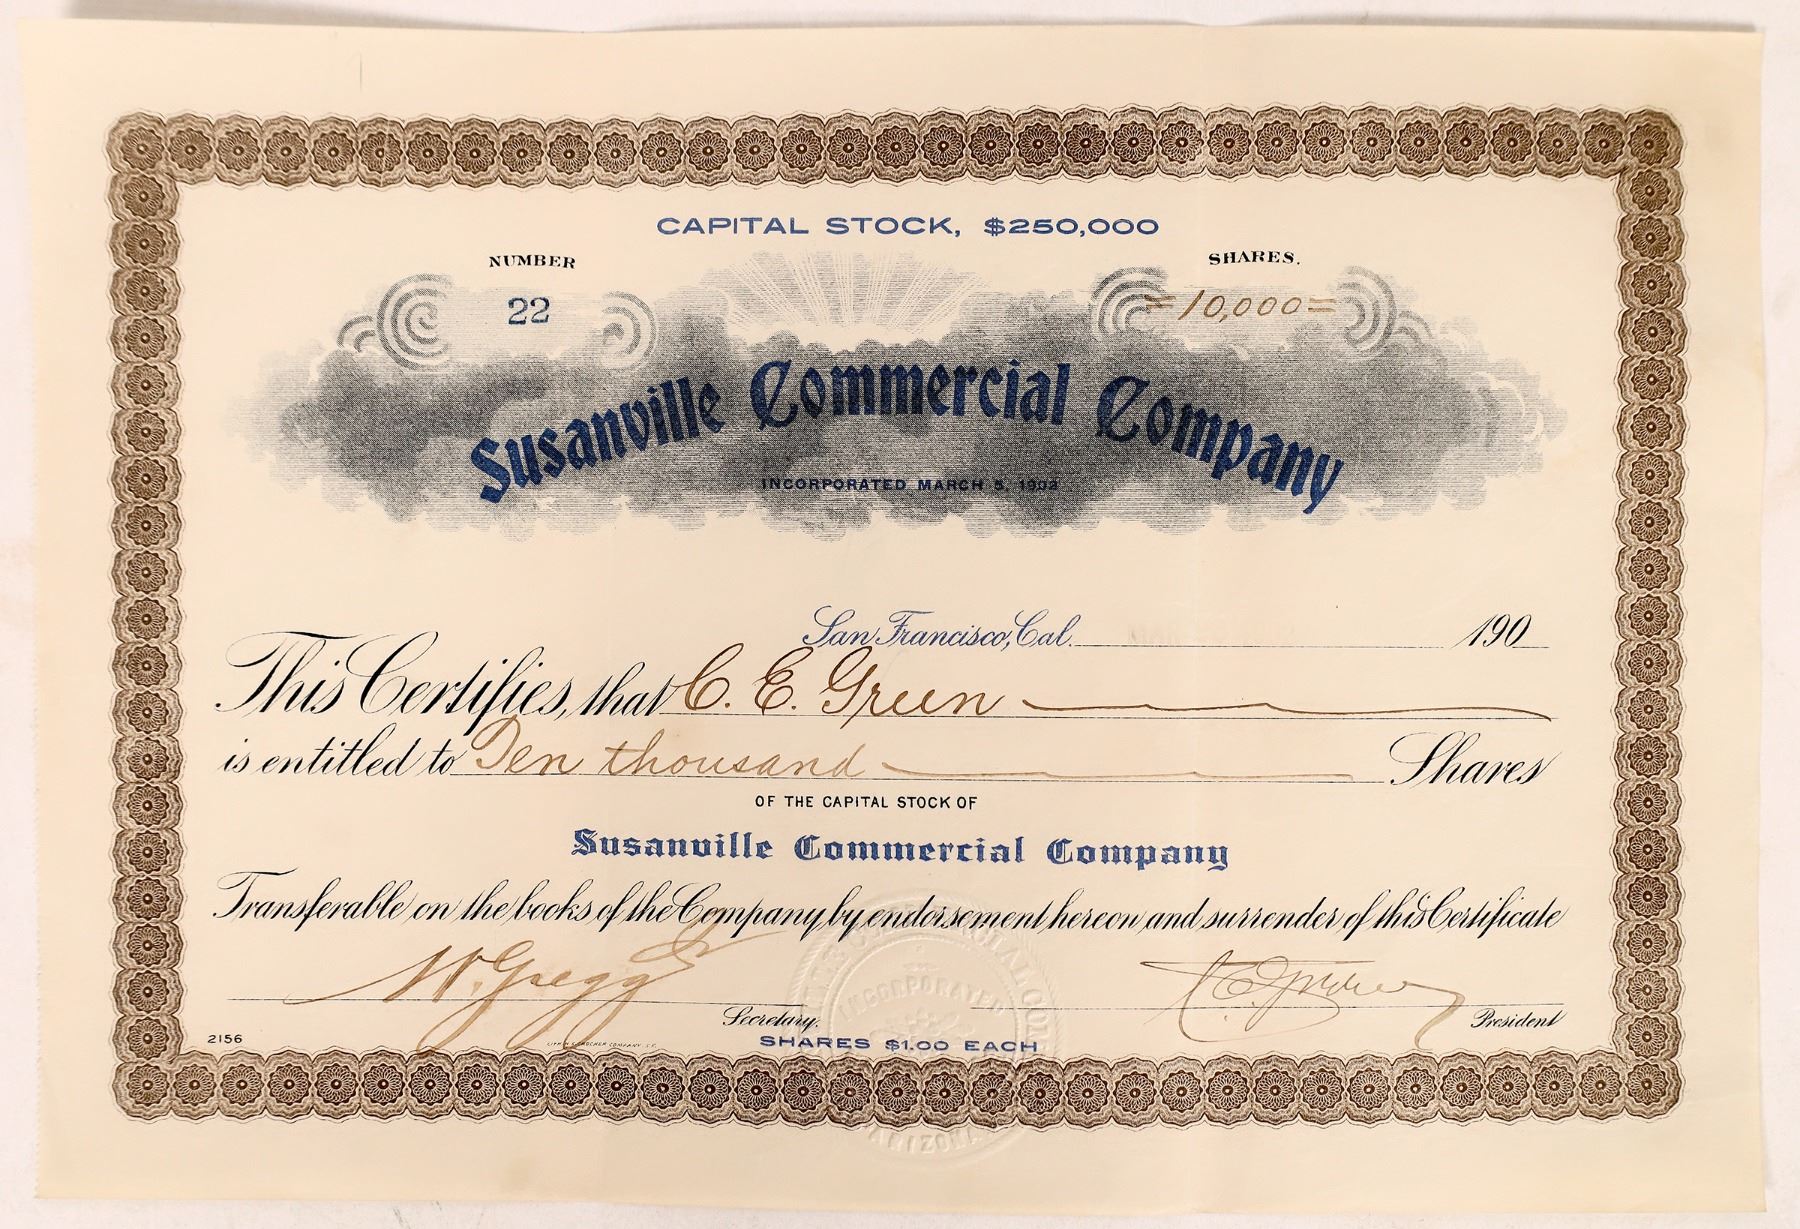 CAPITAL STOCK, $250,000
NUMBER
SHARES.
22
=10,000=
Susanville Commercial Company
INCORPORATED MARCH 5, 1902
San Francisco, Cal. 190
This Certifies, that C. E. Green
is entitled to Ten thousand Shares
OF THE CAPITAL STOCK OF
Susanville Commercial Company
Transferable on the books of the Company by endorsement hereon and surrender of this Certificate
W. Gregg
Secretary.
President
2156
SHARES $1.00 EACH
INCORPORATED
ARIZONA